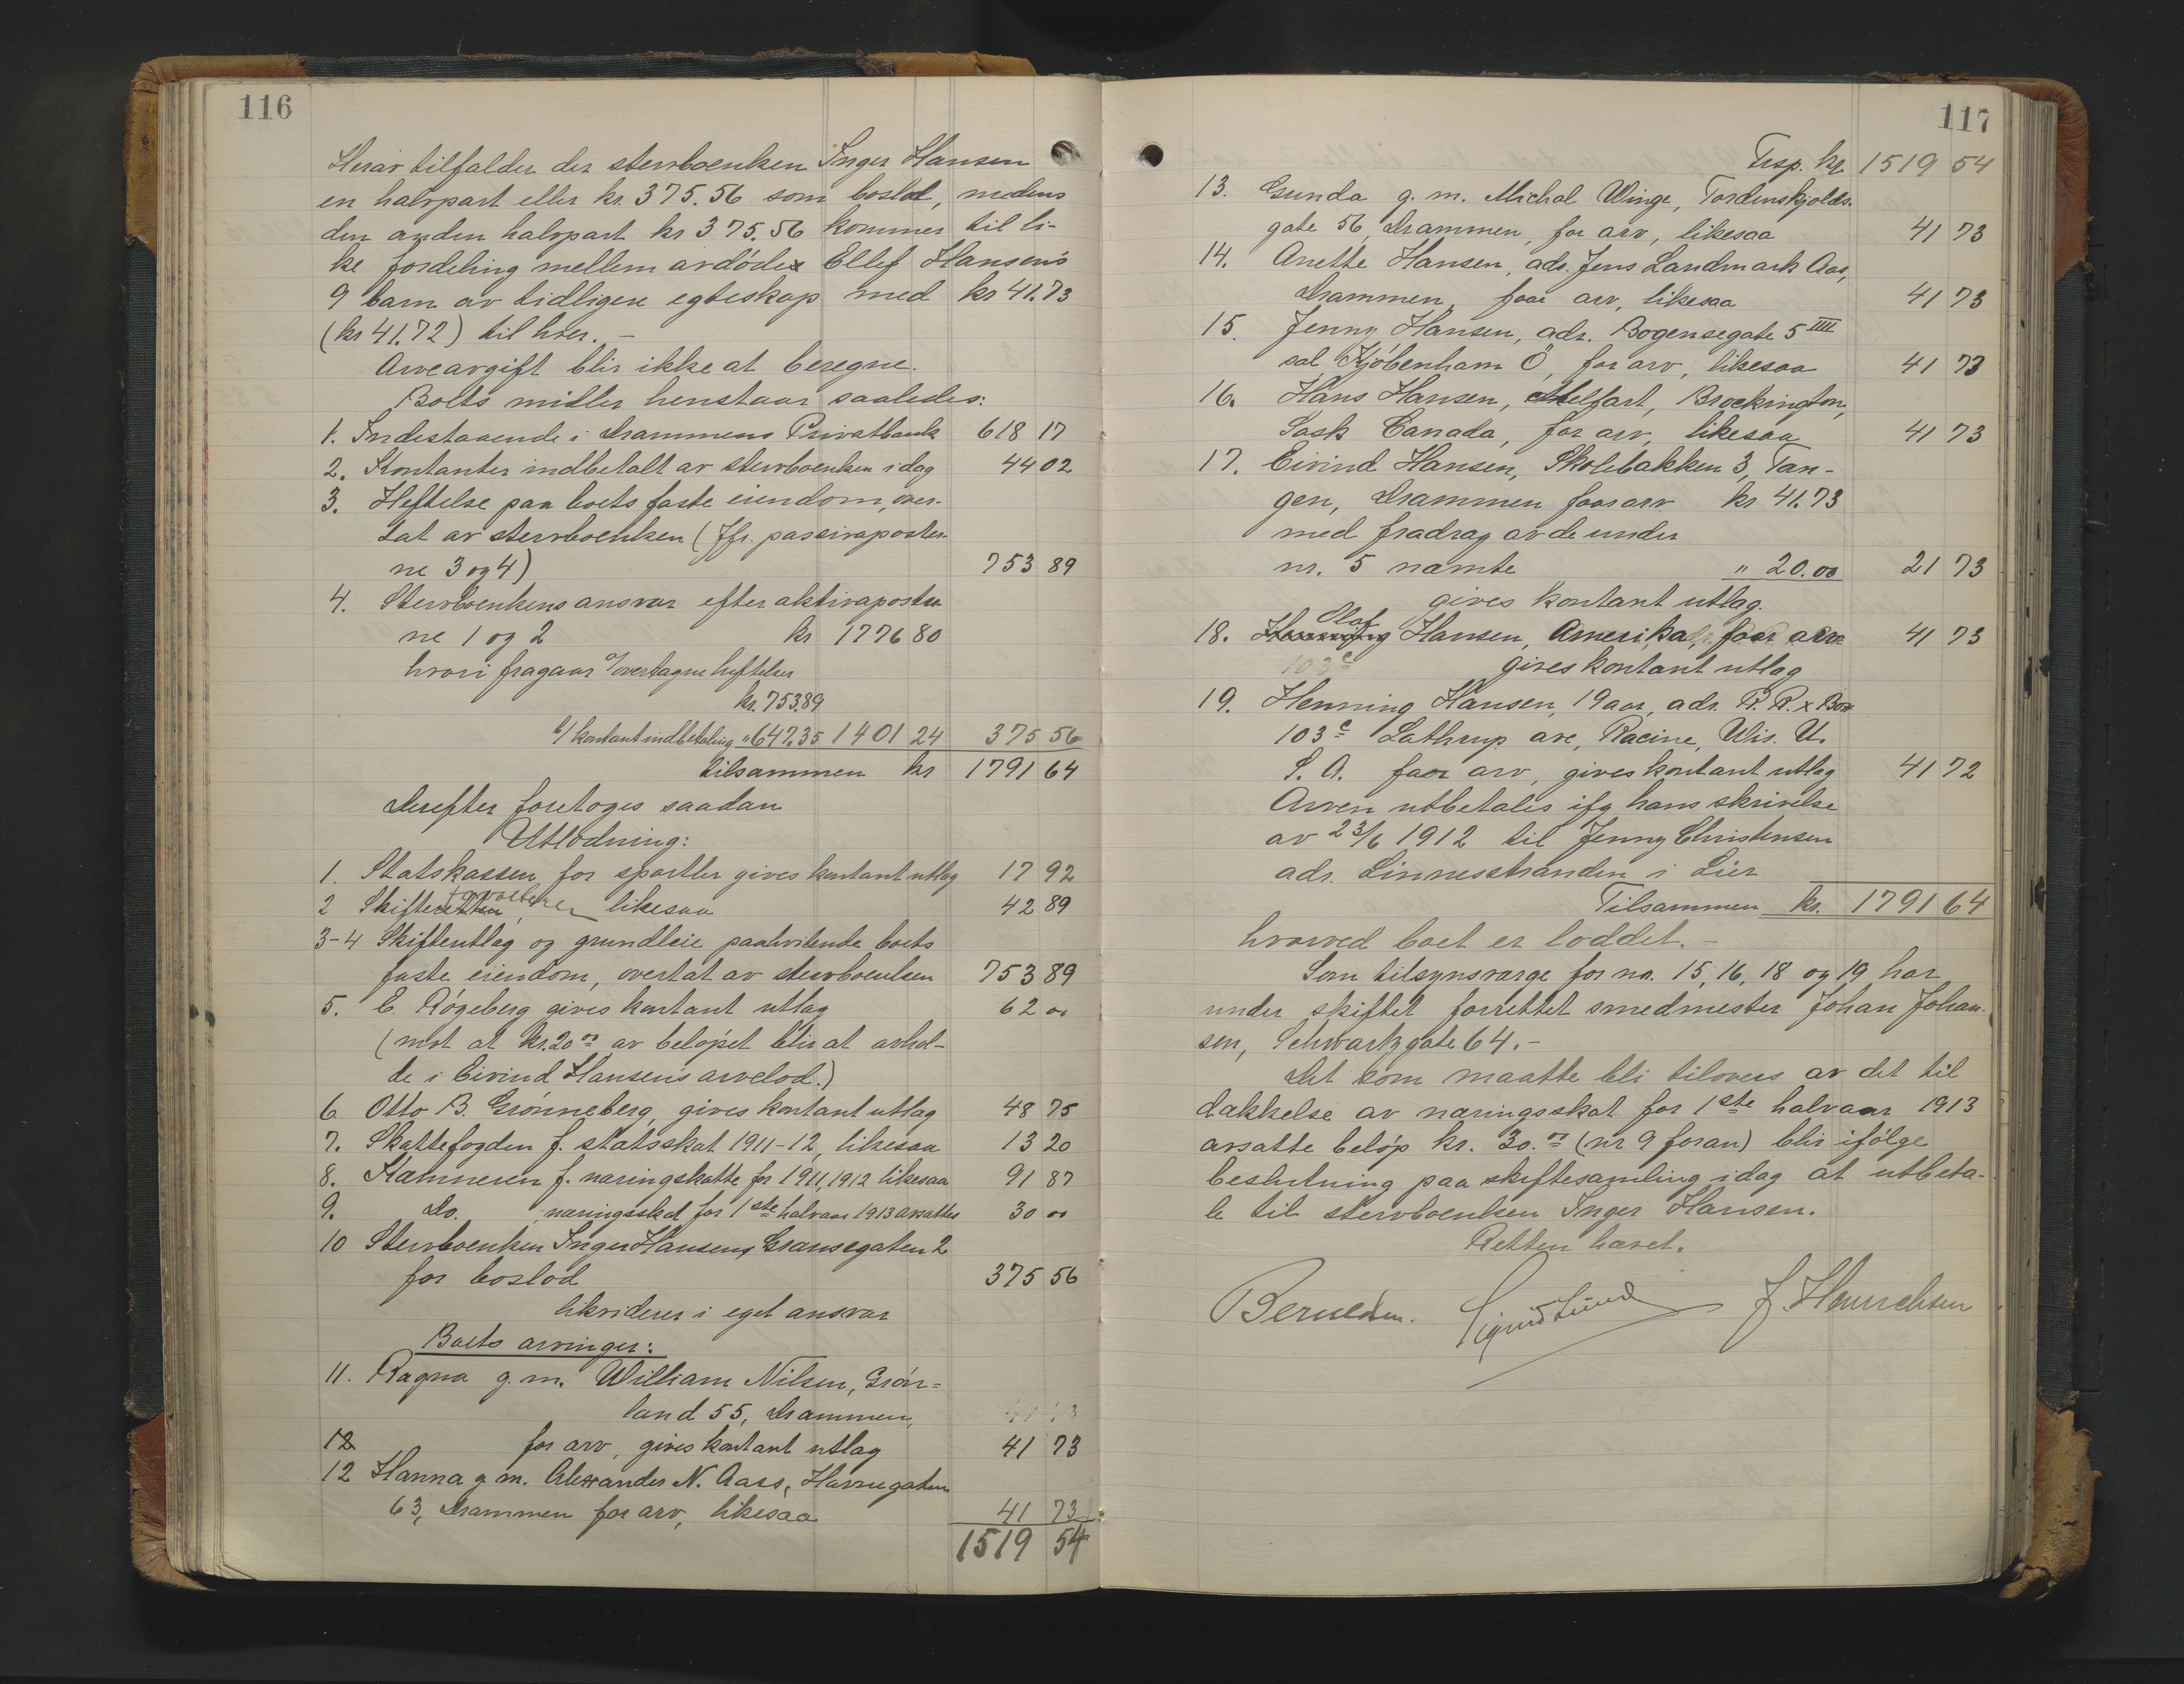 116
Herav tilfalder der stervboenken Inger Hansen
en halvpart eller kr. 375.56 som boslod, medens
den anden halvpart kr 375.56 kommer til li-
ke fordeling mellem avdøde Ellef Hansen's
9 barn av tidligere egteskap med kr 41.73
(kr 41.72) til hver. –
Arveavgift blir ikke at beregne.
Boets midler henstaar saaledes:
1. Indestaaende i Drammens Privatbank 618 17
2. Kontanter indbetalt av stervboenken idag 44 02
3. Heftelse paa boets faste eiendom, over-
tat av stervboenken (Jfr. passivaposter-
ne 3 og 4) 753 89
4. Stervboenkens ansvar efter aktivaposter
ne 1 og 2 kr 1776 80
hvori fragaar a/ overtagne heftelser
kr. 753.89
b/ kontant indbetaling " 647.35 1401 24 375 56
tilsammen kr 1791 64
Derefter foretoges saadan
Utlodning:
1. Statskassen for sportler gives kontant utlag 17 92
2 Skifteretten likesaa 42 89
3-4 Skifteutlag og grundleie paahvilende boets
faste eiendom, overtat av stervboenken 753 89
5. E. Røgeberg gives kontant utlag 62 00
(mot at kr. 20 00 av beløpet blir at avhol-
de i Eivind Hansen's arvelod.)
6. Otto B. Grønneberg, gives kontant utlag 48 75
7. Skattefogden f. statsskat 1911-12, likesaa 13 20
8. Kæmneren f. næringskatte for 1911, 1912 likesaa 91 87
9. Do. næringsskat for 1ste halvaar 1913 avsattes 30 00
10 Stervboenken Inger Hansen, Gransegaten 2
for boslod 375 56
likviderer i eget ansvar
Boets arvinger:
11. Ragna g. m. William Nilsen, Grøn-
land 55, Drammen, 41 73
12 for arv, gives kontant utlag 41 73
12 Hanna g. m. Alexander N. Aass, Havnegaten
63, Drammen for arv, likesaa 41 73
1519 54
117
Trsp. kr. 1519 54
13. Gunda g. m. Michal Winge, Tordenskjolds-
gate 56, Drammen, for arv, likesaa 41 73
14. Anette Hansen, adr. Jens Landmark Aas,
Drammen, faar arv, likesaa 41 73
15. Jenny Hansen, adr. Bogensegate 5 IIII
sal, Kjøbenhavn Ö, for arv, likesaa 41 73
16. Hans Hansen, Melfart, Brockington,
Sask Canada, for arv, likesaa 41 73
17. Eivind Hansen, Skolebakken 3, Tan-
gen, Drammen faar arv kr 41.73
med fradrag av de under
nr. 5 nævnte " 20.00 21 73
gives kontant utlag.
Olaf
18. Henning Hansen, Amerika, faar arv 41 73
103 c gives kontant utlag
19. Henning Hansen, 19 aar, adr. R. R. x Box
103 c Lathrup ave, Racine, Wis. U.
S. A. faar arv, gives kontant utlag 41 72
Arven utbetales ifg hans skrivelse
av 23/6 1912 til Jenny Christensen
adr. Linnesstranden i Lier
Tilsammen kr. 1791 64
hvorved boet er loddet. –
Som tilsynsværge for nr. 15, 16, 18 og 19 har
under skiftet forrettet smedmester Johan Johan-
sen, Schwartzgate 64. –
Det som maatte bli tilovers av det til
dækkelse av næringsskat for 1ste halvaar 1913
avsatte beløp kr. 30.00 (nr 9 foran) blir ifølge
beslutning paa skiftesamling idag at utbeta-
le til stervboenken Inger Hansen.
Retten hævet.
Sigurd Lund